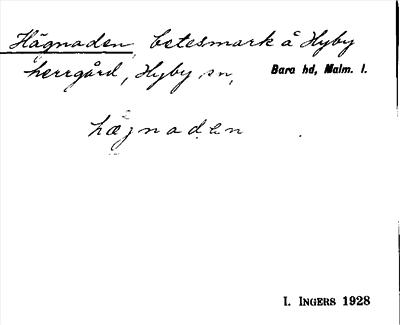 Hägnaden, betesmark å Hyby
herrgård, Hyby sn, Bara hd, Malm. l.
hægnaden
I. INGERS 1928